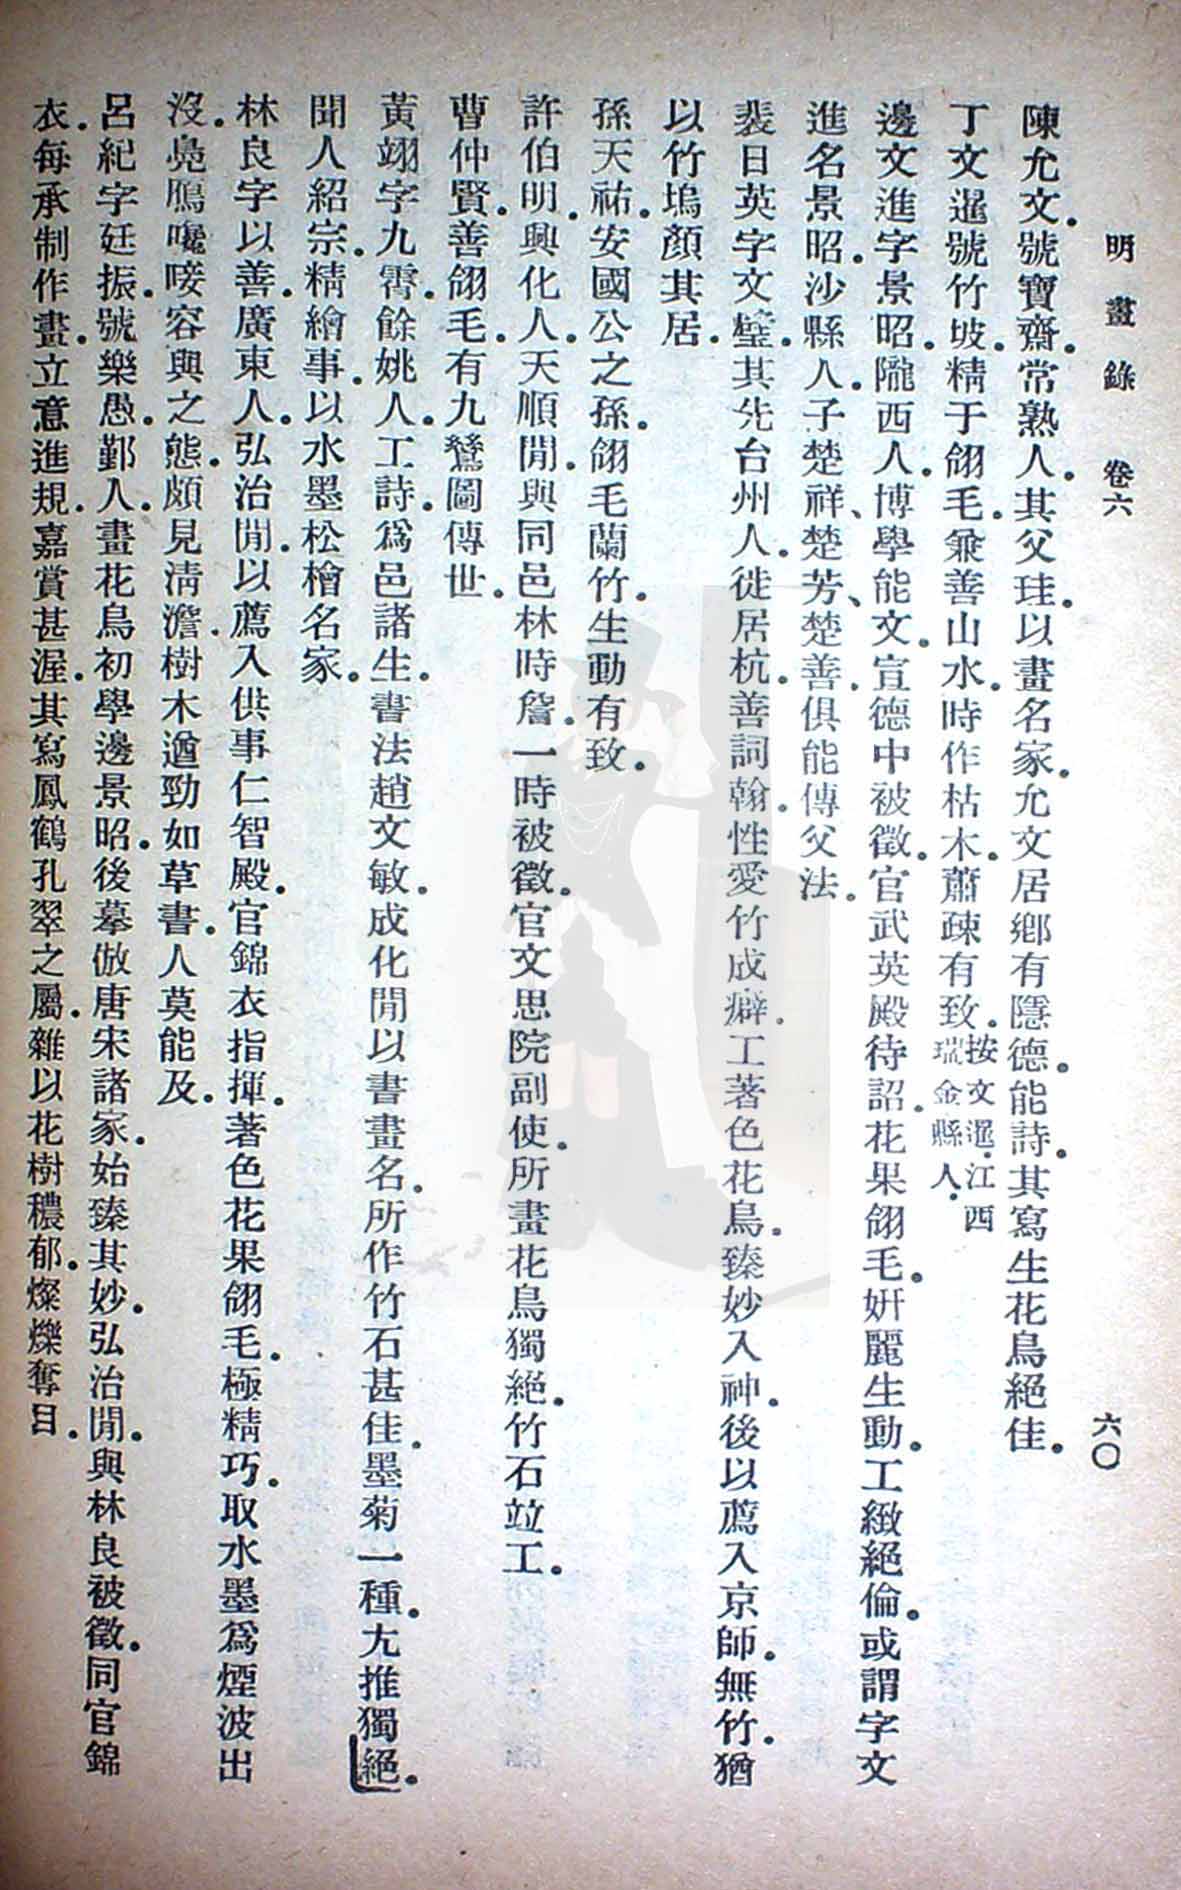 明畫錄 卷六 六〇
陳允文。號寶齋。常熟人。其父珪。以畫名家。允文居鄉有隱德。能詩。其寫生花鳥絕佳。
丁文暹號竹坡。精于翎毛。兼善山水。時作枯木。蕭疎有致。按文暹。江西瑞金縣人。
邊文進字景昭。隴西人。博學能文。宣德中被徵。官武英殿待詔。花果翎毛。姸麗生動。工緻絕倫。或謂字文
進名景昭。沙縣人。子楚祥、楚芳、楚善。俱能傳父法。
裴日英字文璧。其先台州人。徙居杭。善詞翰。性愛竹成癖。工著色花鳥。臻妙入神。後以薦入京師。無竹。猶
以竹塢顏其居。
孫天祐。安國公之孫。翎毛蘭竹。生動有致。
許伯明。興化人。天順閒。與同邑林時詹。一時被徵。官文思院副使。所畫花鳥獨絕。竹石竝工。
曹仲賢。善翎毛。有九鷺圖傳世。
黃翊字九霄。餘姚人。工詩。爲邑諸生。書法趙文敏。成化閒以書畫名。所作竹石甚佳。墨菊一種。尤推獨絕。
聞人紹宗。精繪事。以水墨松檜名家。
林良字以善。廣東人。弘治閒。以薦入供事仁智殿。官錦衣指揮。著色花果翎毛。極精巧。取水墨爲煙波出
沒。鳧鴈嚵唼容與之態。頗見淸澹。樹木遒勁如草書。人莫能及。
呂紀字廷振。號樂愚。鄞人。畫花鳥初學邊景昭。後摹倣唐宋諸家。始臻其妙。弘治閒。與林良被徵。同官錦
衣。每承制作畫。立意進規。嘉賞甚渥。其寫鳳鶴孔翠之屬。雜以花樹穠郁。燦爍奪目。